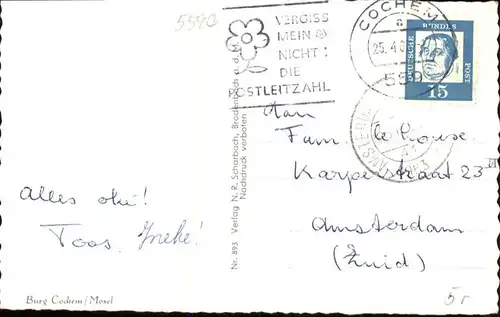 5590
VERGISS
MEIN
NICHT:
DIE
POSTLEITZAHL
COCHEM
a
25.4.6
559
DEUTSCHE BUNDES POST
15
Aan
Fam. le
Karperstraat 23 II
Amsterdam
(Zuid)
Alles oké!
Toos, Ineke!
Nr. 893 Verlag N. R. Scharbach, Brodenbach a. d. M.
Nachdruck verboten
Burg Cochem/Mosel
5r